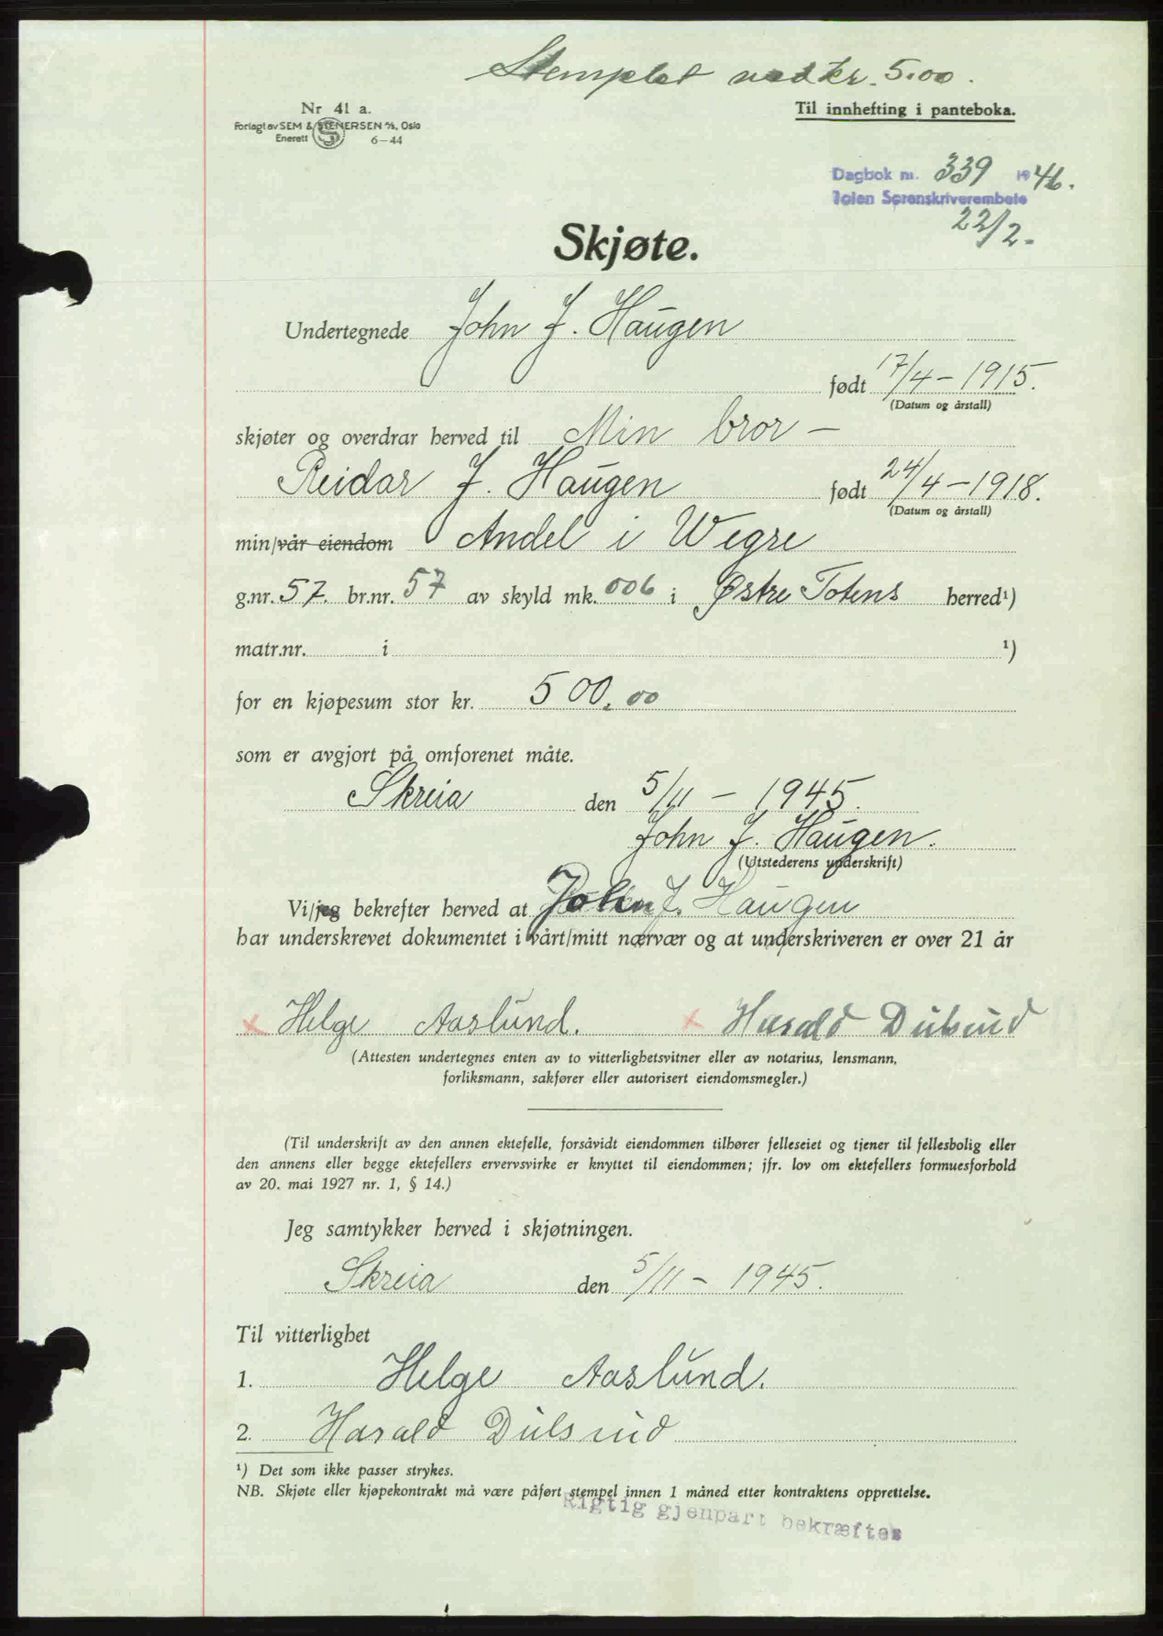 Stemplet med kr. 5.00.
Nr 41 a.
Forlagt av SEM & STENERSEN A/S, Oslo
Enerett 6-44
Til innhefting i panteboka.
Dagbok nr. 339 1946.
Toten Sorenskriverembete
22/2-
Skjøte.
Undertegnede John J. Haugen
født 17/4-1915.
(Datum og årstall)
skjøter og overdrar herved til Min bror -
Reidar J. Haugen født 24/4-1918.
(Datum og årstall)
min/vår eiendom Andel i Wegre
g.nr. 57. br.nr. 57 av skyld mk. 006 i Østre Totens herred¹)
matr.nr. i ¹)
for en kjøpesum stor kr. 500.00
som er avgjort på omforenet måte.
Skreia den 5/11 - 1945.
John J. Haugen.
(Utstederens underskrift)
Vi/jeg bekrefter herved at John J. Haugen
har underskrevet dokumentet i vårt/mitt nærvær og at underskriveren er over 21 år
x Helge Aaslund. x Harald Dulsrud
(Attesten undertegnes enten av to vitterlighetsvitner eller av notarius, lensmann,
forliksmann, sakfører eller autorisert eiendomsmegler.)
(Til underskrift av den annen ektefelle, forsåvidt eiendommen tilhører felleseiet og tjener til fellesbolig eller
den annens eller begge ektefellers ervervsvirke er knyttet til eiendommen; jfr. lov om ektefellers formuesforhold
av 20. mai 1927 nr. 1, § 14.)
Jeg samtykker herved i skjøtningen.
Skreia den 5/11 - 1945.
Til vitterlighet
1. Helge Aaslund.
2. Harald Dulsrud
¹) Det som ikke passer strykes.
NB. Skjøte eller kjøpekontrakt må være påført stempel innen 1 måned etter kontraktens opprettelse.
Rigtig gjenpart bekræftes